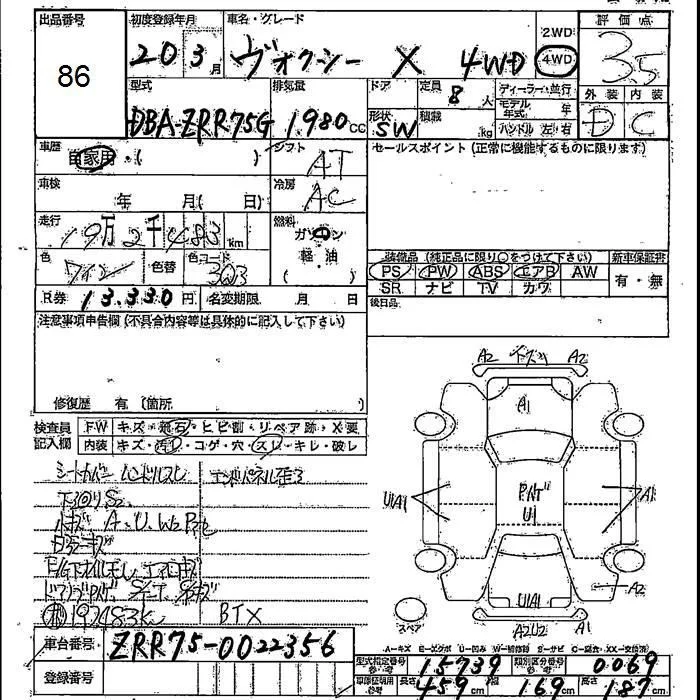 出品番号 初度登録年月 車名・グレード 2WD 評価点
86 20 3月 ヴォクシー X 4WD 4WD 3.5
型式 排気量 ドア 定員 8人 ディーラー・並行 外装 内装
モデル年式 年
DBA-ZRR75G 1980cc 形状 SW 積載 kg ハンドル 左・右 D C
車歴 自家用・( ) シフト AT セールスポイント (正常に機能するものに限ります)
車検 年 月( 日) 冷房 AC
走行 19万2千483km 燃料 ガソリン
軽・油
( )
色 ワイン 色替 色コード 3Q3 装備品 (純正品に限り〇をつけて下さい) 新車保証書
PS PW ABS エアB AW 有・無
SR ナビ TV カワ
R券 13,330円 名変期限 月 日 後日品
注意事項申告欄 (不具合内容等は具体的に記入して下さい)
修復歴 有 (箇所 )
検査員記入欄 FW キズ・飛石・ヒビ割・リペア跡・X要
内装 キズ・汚レ・コゲ・穴・スレ・キレ・破レ
シートカバー ハンドルスレ エンドパネル歪ミ
下回りS2
小キズ A、U、W2
192483km BTX
A2 下スリ A2
A1
UIA1 U1 A1
UIA1 A2
スペア A2U2 A1
A−キズ E−エクボ U−凹み W−補修跡 S−サビ C−腐食・XX−交換済
車台番号 ZRR75-0022356
型式指定番号 15739 類別区分番号 0069
登録番号 車庫証明用参考 長さ 459cm 幅 169cm 高さ 187cm